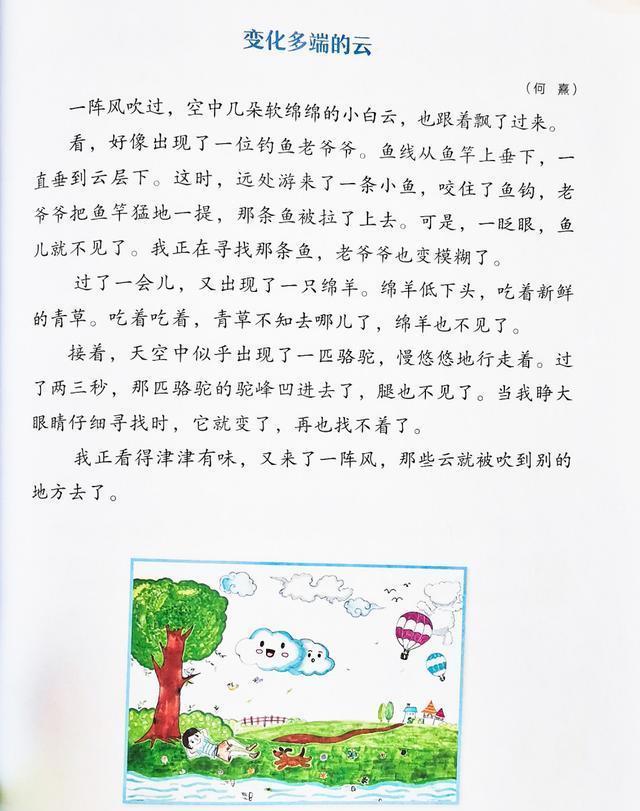 变化多端的云
（何 熹）
一阵风吹过，空中几朵软绵绵的小白云，也跟着飘了过来。
看，好像出现了一位钓鱼老爷爷。鱼线从鱼竿上垂下，一
直垂到云层下。这时，远处游来了一条小鱼，咬住了鱼钩，老
爷爷把鱼竿猛地一提，那条鱼被拉了上去。可是，一眨眼，鱼
儿就不见了。我正在寻找那条鱼，老爷爷也变模糊了。
过了一会儿，又出现了一只绵羊。绵羊低下头，吃着新鲜
的青草。吃着吃着，青草不知去哪儿了，绵羊也不见了。
接着，天空中似乎出现了一匹骆驼，慢悠悠地行走着。过
了两三秒，那匹骆驼的驼峰凹进去了，腿也不见了。当我睁大
眼睛仔细寻找时，它就变了，再也找不着了。
我正看得津津有味，又来了一阵风，那些云就被吹到别的
地方去了。